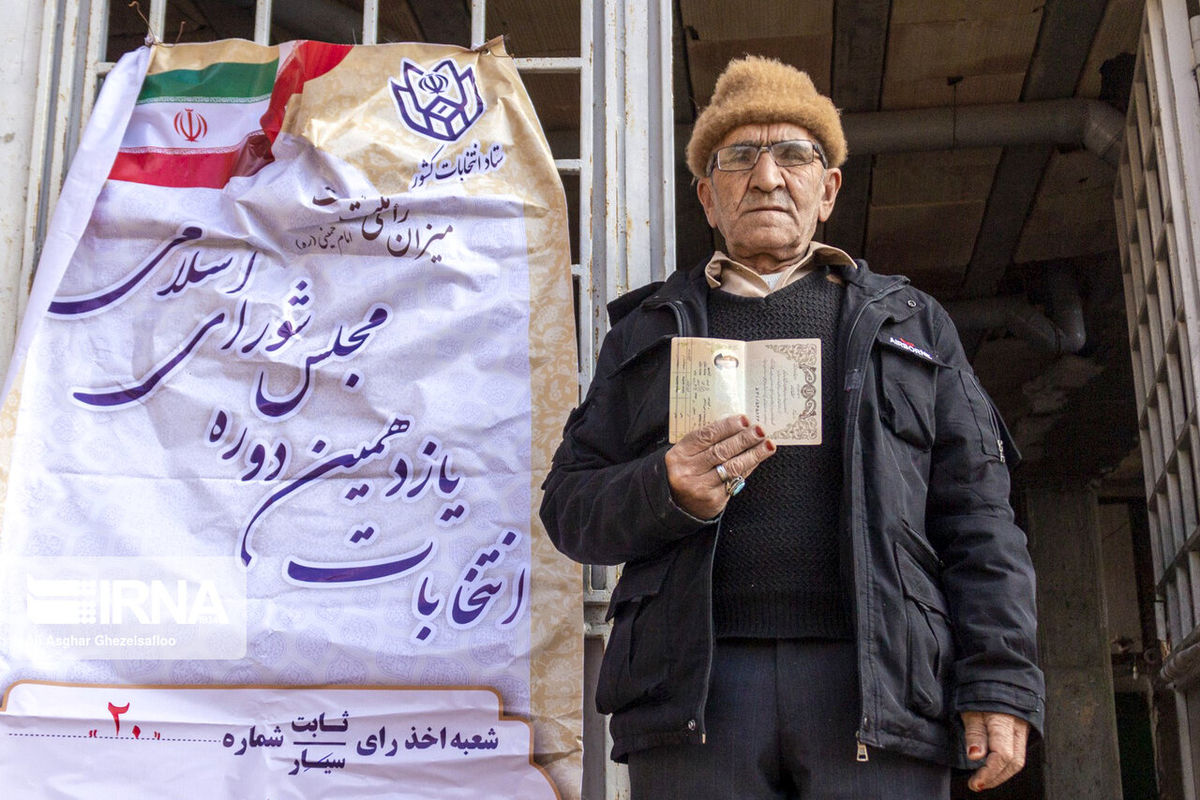 ستاد انتخابات کشور
میزان رأی ملت است
امام خمینی (ره)
انتخابات
یازدهمین دوره
مجلس شورای
اسلامی
شعبه اخذ رای ثابت سیار شماره "۲۰"
AIRBORNE
IRNA
1934
Ali Asghar Ghezelsafloo